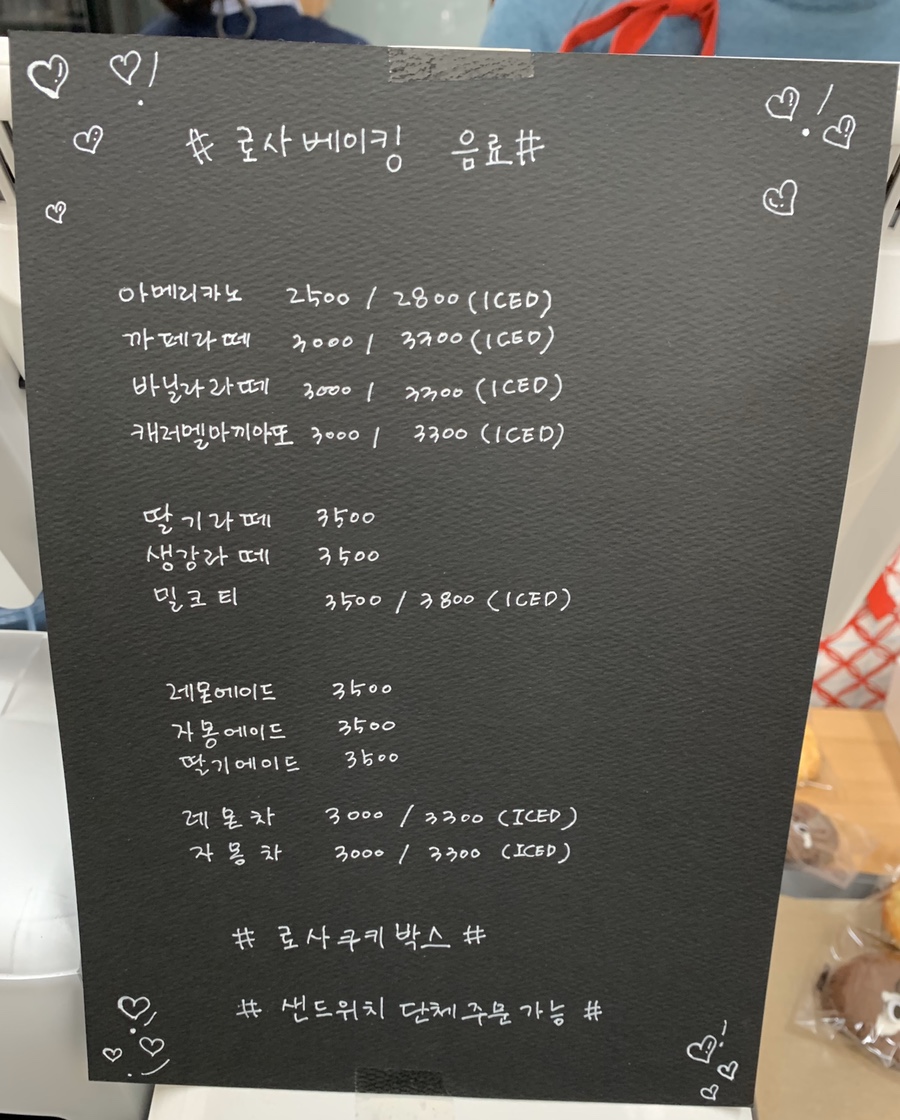 # 로사베이킹 음료#
아메리카노 2500 / 2800 (ICED)
까페라떼 3000 / 3300 (ICED)
바닐라라떼 3000 / 3300 (ICED)
캐러멜마끼아또 3000 / 3300 (ICED)
딸기라떼 3500
생강라떼 3500
밀크티 3500 / 3800 (ICED)
레몬에이드 3500
자몽에이드 3500
딸기에이드 3500
레몬차 3000 / 3300 (ICED)
자몽차 3000 / 3300 (ICED)
# 로사쿠키박스 #
# 샌드위치 단체주문가능 #